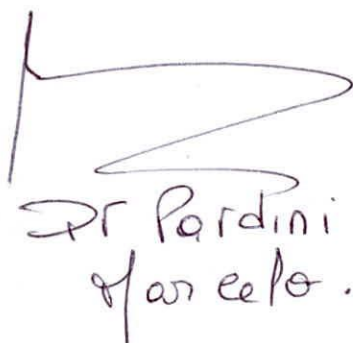 Dr Pardini
Marcelo.